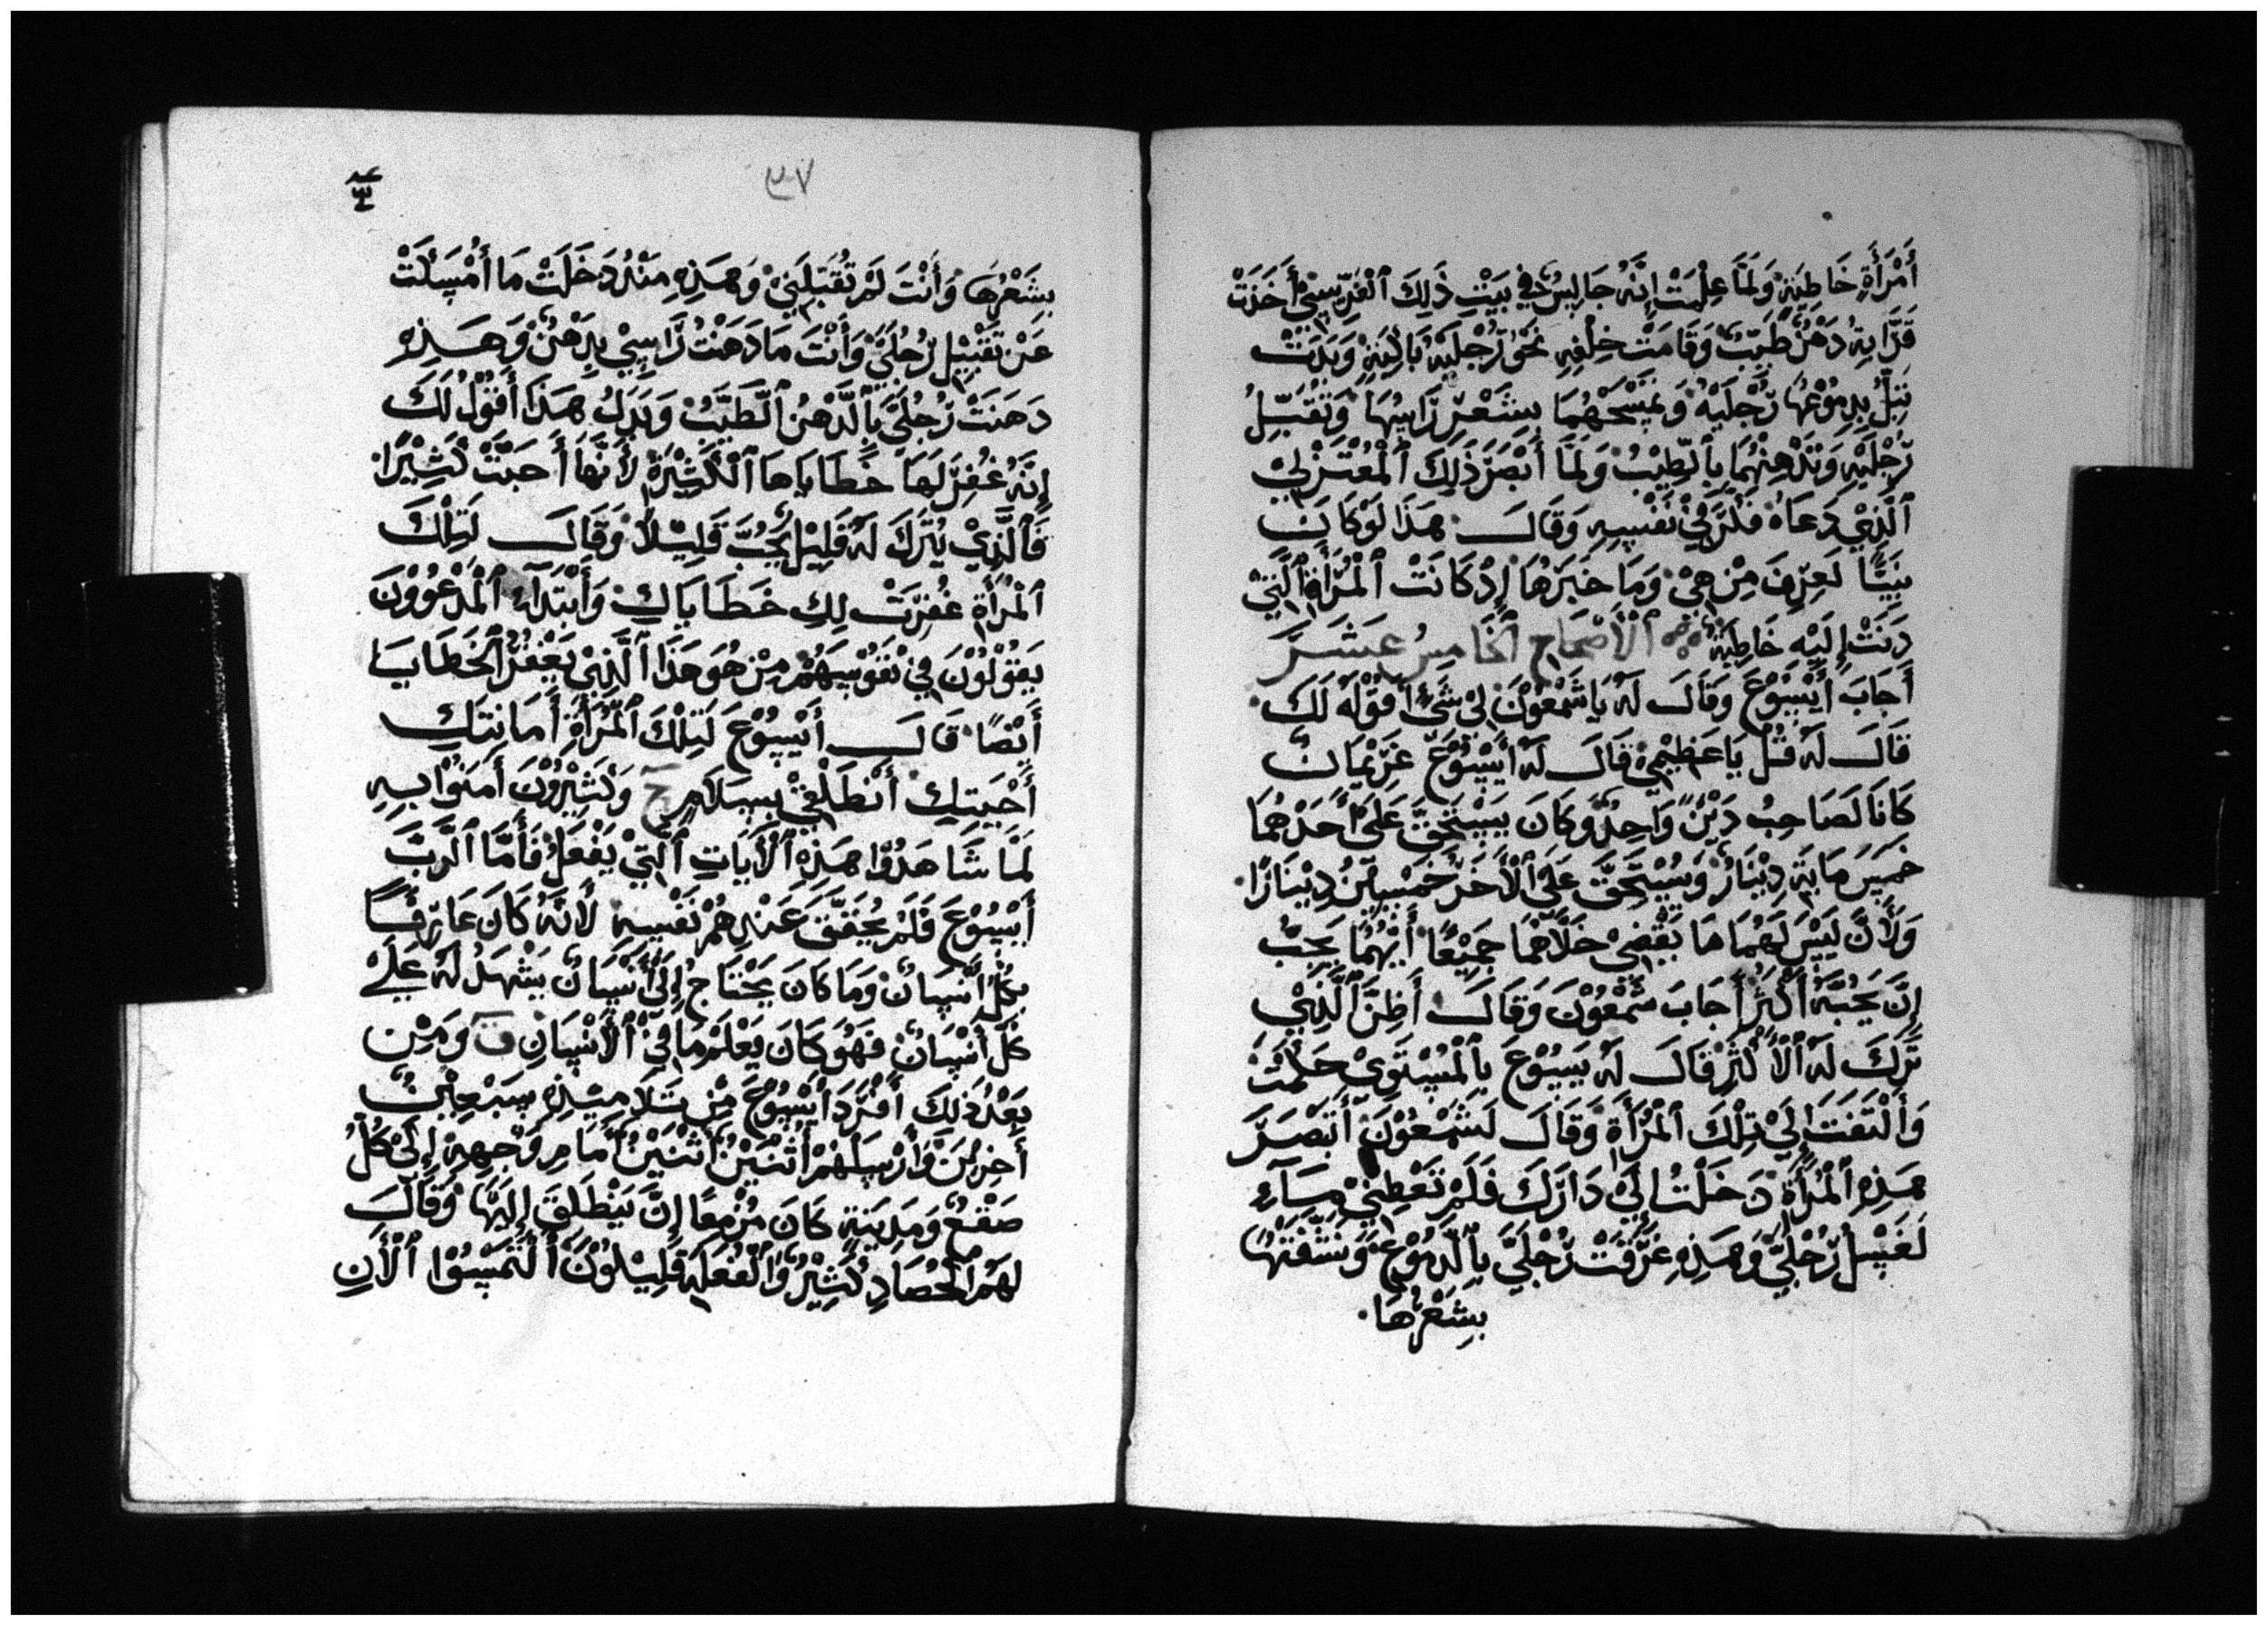 أَمْرَأَةٍ خَاطِيَةٌ وَلَمَّا عَلِمَتْ إِنَّهُ جَالِسٌ فِي بَيْتِ ذَلِكَ ٱلْفَرِّيسِيْ أَخَذَتْ
قَرَّابَةِ دَهْنٌ طَيِّبٌ وَقَامَتْ خِلْفِهِ نَحْوَ رِّجْلَيْهِ بَاكِيَةٍ وَبَدَتْ
تَبِلُّ بِدِمُوْعِهَا رِّجْلَيْهِ وَتَمْسَحْهُمَا بِشَعْرِ رَاسِهَا وَتُقَبِّلُ
رِّجْلَيْهِ وَتَدْهِنْهُمَا بِٱلطِّيْبُ وَلَمَّا أَبْصَرَ ذَلِكَ ٱلْمُعْتَزْلِيْ
ٱلَّذِيْ دَعَاهُ فَكَّرَ فِيْ نَفْسِهِ وَقَالَ هَذَا لَوْ كَانَ
نَبِيًّا لَعِرِفَ مِنْ هِيَ وَمَا خَبَرَهَا إِذْ كَانَتْ ٱلْمُرَأَةِ ٱلَّتِيْ
دَنَتْ إِلَيْهِ خَاطِيَةٌ ٱلْأَصْحَاحِ ٱلْخَامِسُ عَشَرَ
أَجَابَ أَيْسُوْعَ وَقَالَ لَهُ يَا شَمْعُوْنَ لِيْ شَيْءٌ أَقُوْلَهُ لَكَ
قَالَ لَهُ قُلْ يَا عَظِيْمِيْ قَالَ لَهُ أَيْسُوْعَ غَرِّيْمَانٌ
كَانَا لَصَاحِبُ دَيْنٌ وَاحِدٌ وَكَانَ يَسْتَحِقَّ عَلَىٰ أَحَدْهُمَا
خَمْسَ مَايَةِ دِيْنَارٌ وَيَسْتَحِقَّ عَلَى ٱلْأَخَرْ خَمْسِيْنَ دِيْنَارًا
وَلَأَنَّ لَيْسَ لَهُمَا مَا يَقْضِيْ خَلَّاهُمَا جَمِيْعًا أَيُّهُمَا يَجِبُ
إِنَّ يَحُبَّهُ أَكْثَرْ أَجَابَ شَمْعُوْنَ وَقَالَ أَظِنَّ ٱلَّذِيْ
تَرَكَ لَهُ ٱلْأَكْثَرْ قَالَ لَهُ يَسُوْعَ بِٱلْمُسْتَوِيْ حَكَمْتَ
وَأَلْتَفَتَ إِلَىْ تِلْكَ ٱلْمُرَأَةَ وَقَالَ لَشَمْعُوْنَ أَتَبْصَرَّ
هَذِهِ ٱلْمُرَأَةْ دَخَلْتُ إِلَىْ دَارَكَ فَلَمْ تَعْطِنِيْ مَآءٍ
لَغَسْلِ رِّجْلَيَّ وَهَذِهِ غَرَّقَتْ رَجْلَيَّ بِٱلدِمُوْعِ وَنَشَّفَتْهَا
بِشِعْرْهَا
٣٧
بِشَعْرِهَا وَأَنْتَ لَمْ تُقَبِّلَنِيْ وَهَذِهِ مِنْذُ دَخَلَتْ مَا أَمْسَكَتْ
عَنْ تَقْبِيْلِ رِّجْلَيَّ وَأَنْتَ مَا دَهَنْتُ رَّاسِيْ بِدِهْنٌ وَهَذِهِ
دَهَنَتْ رَجْلَيَّ بِٱلدَّهْنِ ٱلطَّيِّبُ وَبَدَلُ هَذَا أَقُوْلُ لَكَ
إِنَّهُ غُفِرَ لَهَا خَطَايَاهَا ٱلْكَثِيْرَةُ لَأَنَّهَا أَحَبَّتْ كَثِيْرًا
فَٱلَّذِيْ يُتْرَكَ لَهُ قَلِيْلٌ يَحُبَّ قَلِيْلاً وَقَالَ لَتِلْكَ
ٱلْمُرَأَةِ غُفِرَّتْ لِكِ خَطَايَاكِ وَأَبْتَدَآءُ ٱلْمَدْعُوُوْنَ
يَقُوْلُوْنَ فِيْ نَفُوْسِهِمْ مِنْ هُوَ هَذَا ٱلَّذِيْ يَغْفِرْ ٱلْخَطَايَا
أَيْضًا قَالَ أَيْسُوْعَ لَتِلْكَ ٱلْمُرَأَةِ أَمَانَتِكِ
أَحْيَتِكِ أَنْطَلْقِيْ بِسَلَامِ حَ وَكَثِيْرُوْنَ أَمَنُوْا بِهِ
لَمَّا شَاهَدُوْا هَذِهِ ٱلْأَيَاتِ ٱلَّتِيْ يَفْعَلْ فَأَمَّا ٱلرَّبَّ
أَيْسُوْعَ فَلَمْ يُحَقِّقَ عَنْدِهُمْ نَفْسِهِ لَأَنَّهُ كَانَ عَارِفًا
بِكُلِّ أَنْسَانٌ وَمَا كَانَ يَحْتَاجُ إِلَىٰ أَنْسَانٌ يَشْهَدُ لَهُ عَلَىٰ
كُلَّ أَنْسَانٌ فَهُوَ كَانَ يَعْلَمْ مَا فِيْ ٱلْأَنْسَانِ قَ وَمِنْ
بَعْدُ ذَلِكَ أَفْرَدَ أَيْسُوْعَ مَنْ تَلَامِيْذِهِ سَبْعِيْنَ
أَخِرِيْنَ وَأَرْسَلَهُمْ أَثْنَيْنْ أَثْنَيْنْ أَمَامِ وَجْهِهِ إِلَىْ كُلُ
صَقْعٌ وَمَدِيْنَةٍ كَانَ مُزْمِعًا إِنَّ يَنْطَلِقَ إِلَيْهَا وَقَالَ
لَهُمْ ٱلْحَصَادِ كَثِيْرٌ وَٱلْفَعَلَةِ قَلِيْلُوْنَ أَلْتَمِسُوْا ٱلْأَنِ